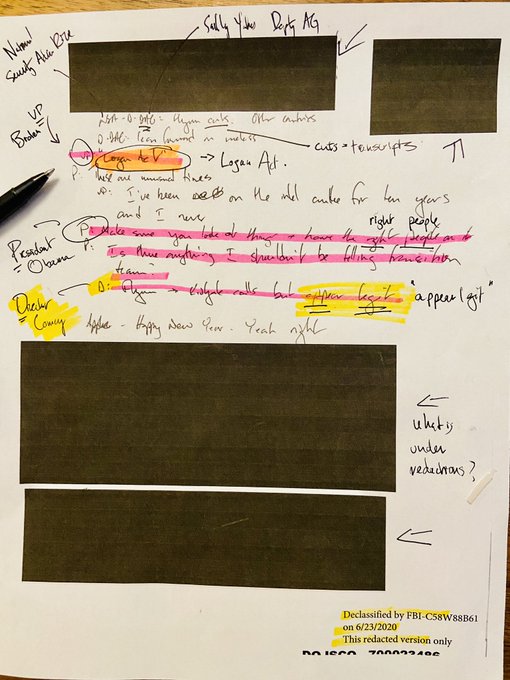 National
Security Advisor Rice
Sally Yates Depty AG
NSA-D-DAG: Flynn cuts. Other countries
D-DAG: lean forward on unclass
cuts = transcripts
VP
Biden
VP: "Logan Act" → Logan Act.
P: These are unusual times
VP: I've been on the intel cmtte for ten years
and I never
right people
P: Make sure you look at things + have the right people on it
President
Obama
P: Is there anything I shouldn't be telling transition
team.
D: Flynn → kislyak calls but appear legit "appear legit"
Director
Comey
Happy New Year. Yeah right
What is
under
redactions?
Declassified by FBI-C58W88B61
on 6/23/2020
This redacted version only
DOJSCO - 700023486